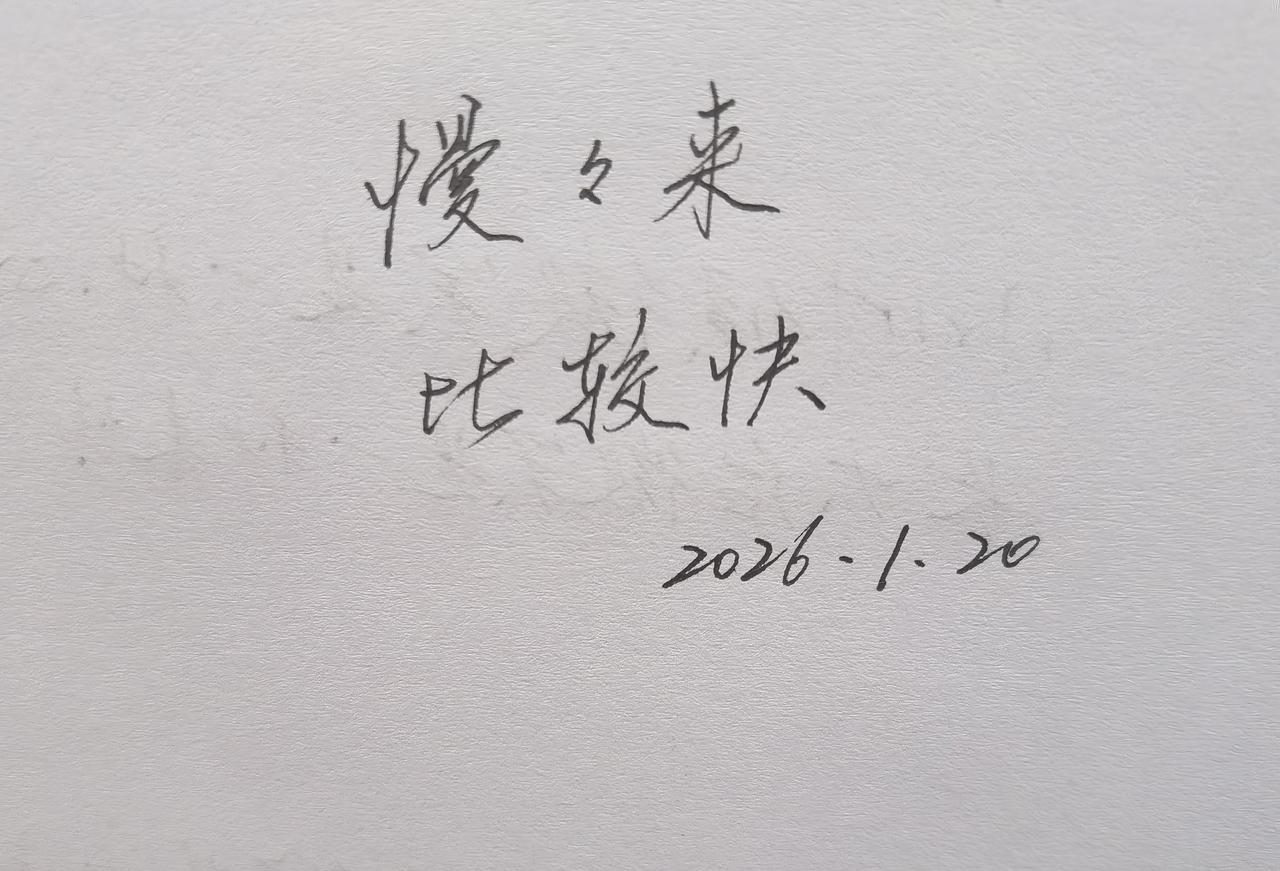 慢々来
比较快
2026.1.20